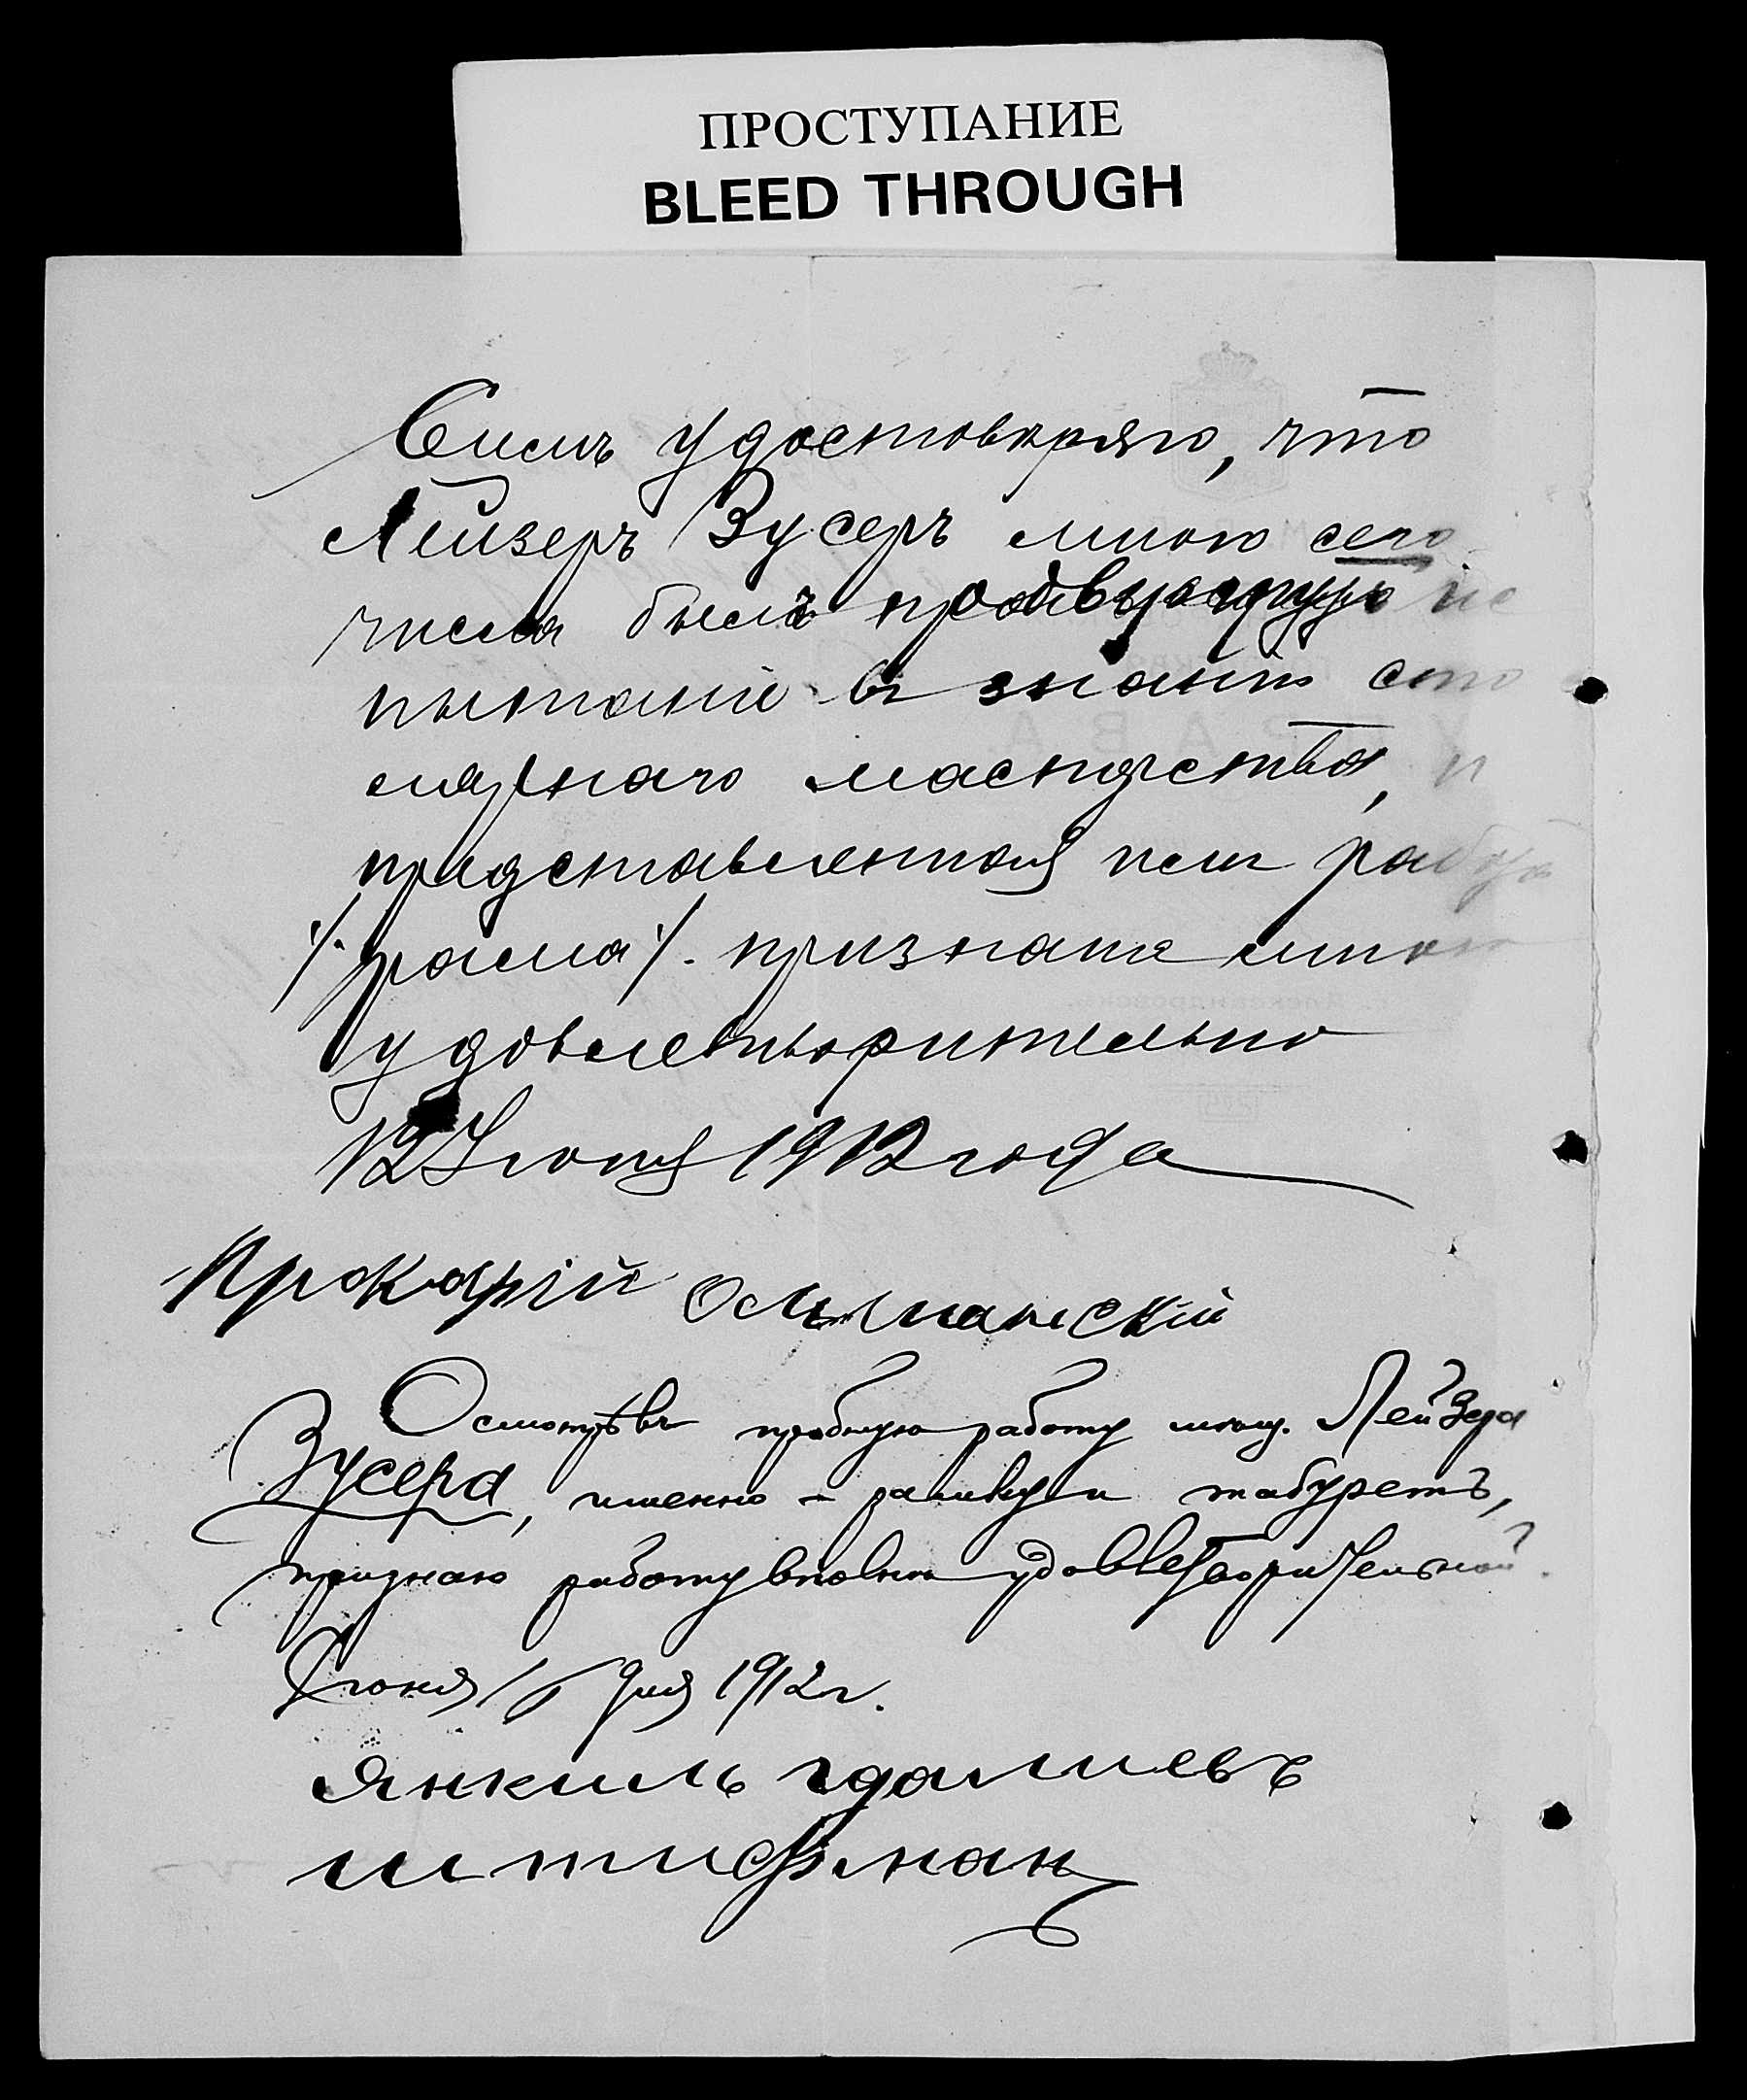 ПРОСТУПАНИЕ
BLEED THROUGH
Симъ удостовѣряю, что
Лейзеръ Зусеръ мною сего
числа былъ подвергнутъ ис
пытанію въ знаніи сто
лярнаго мастерства, и
представленная имъ работа
/. рама /. признана мною
удовлетворительно
12 Іюня 1912 года
Прокофій Ольшанскій
Осмотрѣвъ пробную работу мѣщ. Лейзера
Зусера, именно – рамку и табуретъ,
признаю работу вполнѣ удовлетворительной.
Іюня 16 дня 1912 г.
Янкиль Гдалиевъ
Штифман